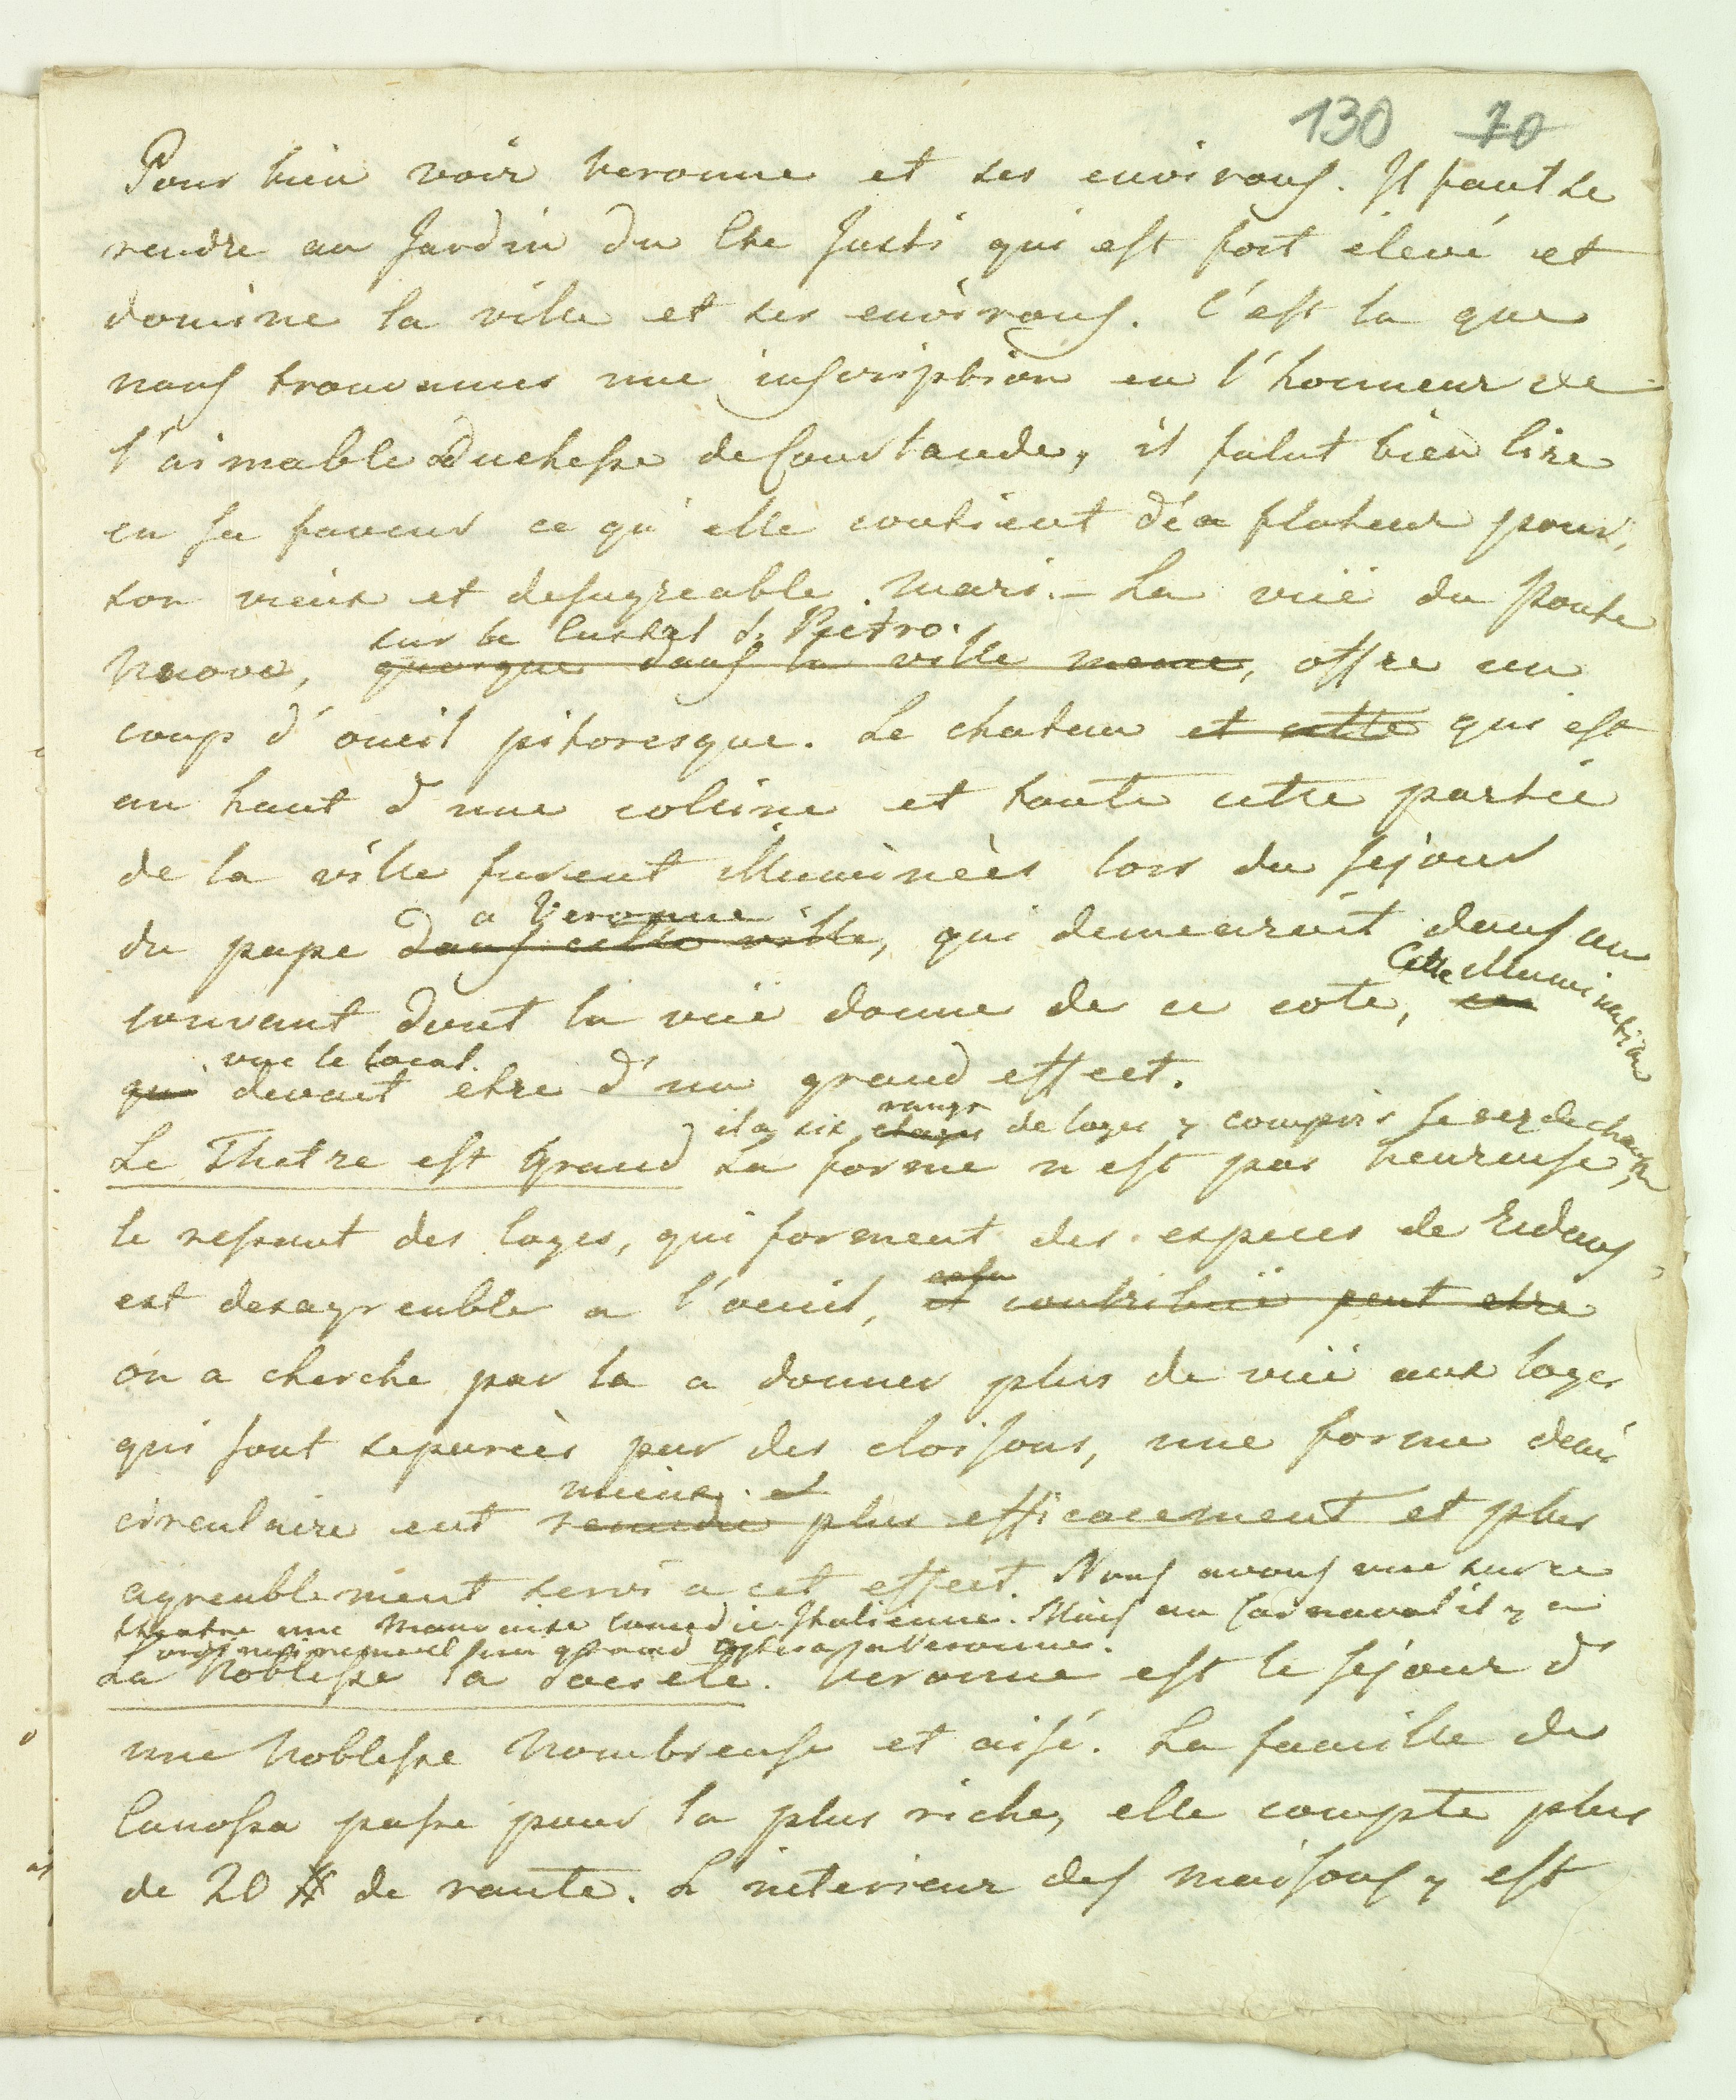 130 70
Pour bien voir veronne et ses environs. Il faut se
rendre au Jardin du Cte Justi qui est fort élevé et
domine la ville et ses environs. C'est la que
nous trouvames une inscription en l'honneur de
l'aimable Duchesse de Courlande, il falut bien lire
en sa faveur ce qu'elle contient de flateur pour
son vieux et desagreable mari. – La vüe du Ponte
sur le Castel S. Pietro.
Nuovo, quoique dans la ville meme, offre un
coup d'oueil pitoresque. Le chateau et cette qui est
au haut d'une colline et toute cette partie
de la ville furent illuminées lors du sejour
a Veronne
du pape dans cette ville, qui demeuroit dans un
Cette illumination
couvant dont la vüe donne de ce coté,
vue le local.
qui devait etre d'un grand effect.
il a six rangs etages de loges y compris le rez de chaussée
Le Thetre est grand La forme n'est pas heureuse,
le ressaut des loges, qui forment des especes de Ridaus
est desagreable a l'oeuil, et contribue peut etre
on a cherche par la a donner plus de vüe aux loges
qui sont separées par des cloisons, une forme demi
mieux et
circulaire eut plus efficacement et plus
agreablement servi a cet effect. Nous avons vue sur ce
theatre une mauvaise comedie Italienne. Mais au Carnaval il y a
grand opera a Veronne.
La Noblesse la Societe. Veronne est le sejour d'
une Noblesse Nombreuse et aisé. La famille de
Canossa passe pour la plus riche, elle compte plus
de 20 de rante. L'interieur des maisons y est